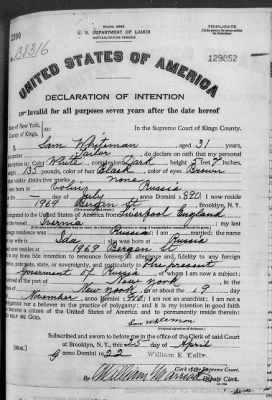 2100
No. 138316
U. S. DEPARTMENT OF LABOR
NATURALIZATION SERVICE
TRIPLICATE
129052
UNITED STATES OF AMERICA
DECLARATION OF INTENTION
Invalid for all purposes seven years after the date hereof
State of New York,
County of Kings,
ss:
In the Supreme Court of Kings County.
I, Sam, aged 31 years,
occupation, do declare on oath that my personal
description is: Color White, complexion Dark, height 5 feet 7 inches,
weight 135 pounds, color of hair Black, color of eyes Brown
other visible distinctive marks None
Russia
day of July, anno Domini 1890; I now reside
at 1969 Bergen St, Brooklyn, N.Y.
I emigrated to the United States of America from Liverpool England
on the vessel; my last
foreign residence was Russia; I am married; the name
of my wife is Ida; she was born at Russia
and now resides at 1969 Bergen St
It is my bona fide intention to renounce forever all allegiance and fidelity to any foreign
prince, potentate, state, or sovereignty, and particularly to The present
Government of Russia, of whom I am now a subject;
I arrived at the port of New York, in the
State of New York, on or about the 19 day
of November, anno Domini; I am not an anarchist; I am not a
polygamist nor a believer in the practice of polygamy; and it is my intention in good faith
to become a citizen of the United States of America and to permanently reside therein:
SO HELP ME GOD.
Subscribed and sworn to before me in the office of the Clerk of said Court
at Brooklyn, N.Y., this 25 day of April
anno Domini 1922
[SEAL]
William E. Kelly,
Clerk of the Supreme Court.
By William
Deputy Clerk.